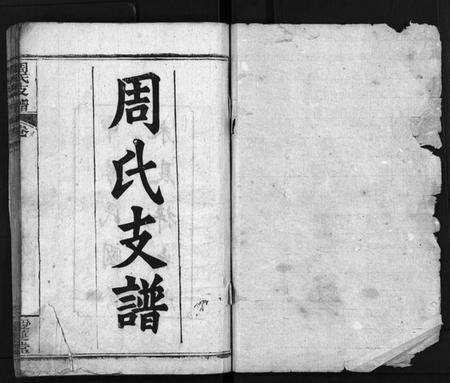 周氏支譜
周氏支譜